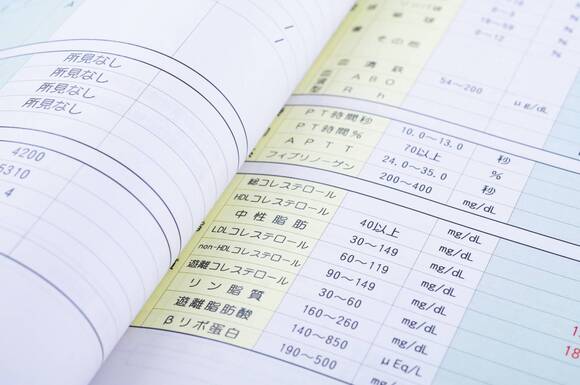 所見なし
所見なし
所見なし
所見なし
4200
5310
4
その他 0～12 N
血清鉄 54～200 μg/dL
ABO
型 Rh
PT時間秒 10.0～13.0 秒
PT時間% 70以上 %
APTT 24.0～35.0 秒
フィブリノーゲン 200～400 mg/dL
総コレステロール mg/dL
HDLコレステロール 40以上 mg/dL
中性脂肪 30～149 mg/dL
LDLコレステロール 60～119 mg/dL
non-HDLコレステロール 90～149 mg/dL
遊離コレステロール 30～60 mg/dL
リン脂質 160～260 mg/dL
遊離脂肪酸 140～850 μEq/L
βリポ蛋白 190～500 mg/dL
18